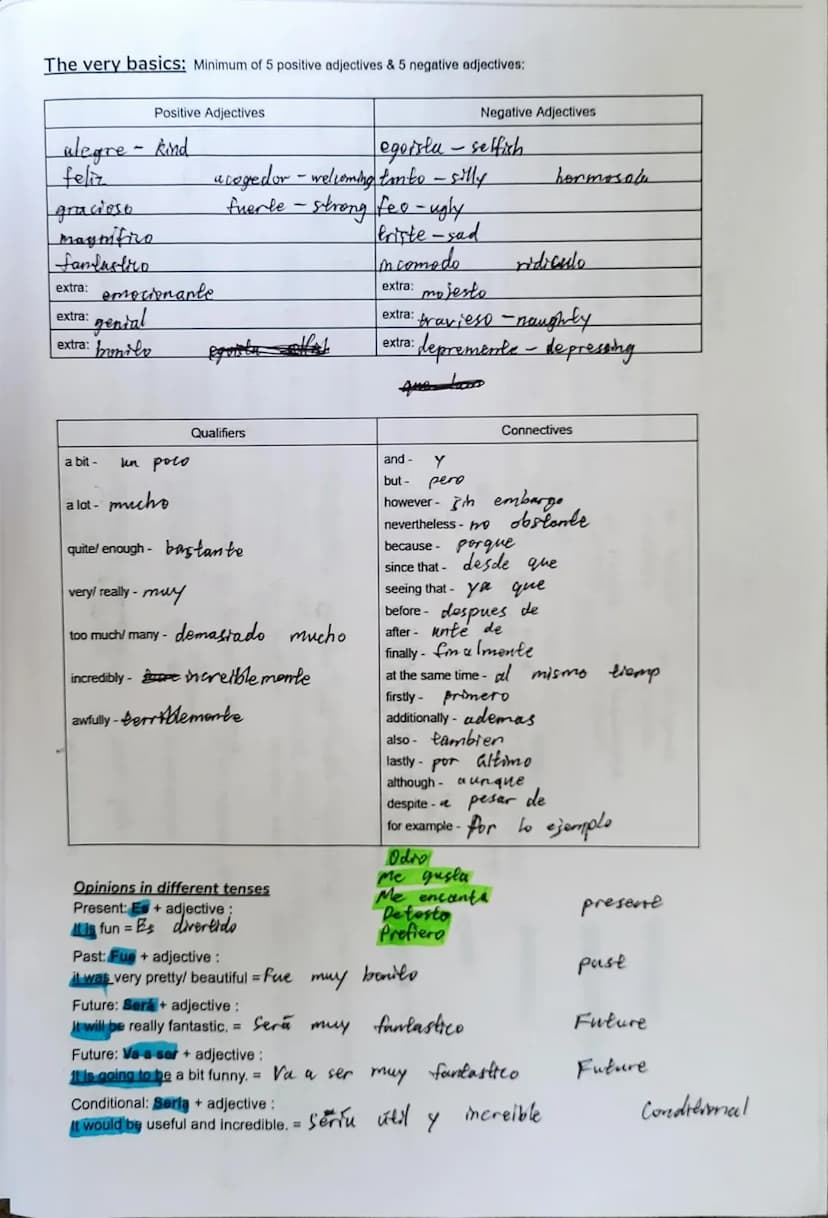 The very basics: Minimum of 5 positive adjectives & 5 negative adjectives:
Positive Adjectives Negative Adjectives
alegre - kind egoista - selfish
feliz acogedor - welcoming tonto - silly
gracioso fuerte - strong feo - ugly
magnifico triste - sad
fantastico incomodo ridiculo
extra: emocionante extra: molesto
extra: genial extra: travieso - naughty
extra: bonito extra: depremente - depressing
Qualifiers Connectives
a bit - un poco
a lot - mucho
quite/ enough - bastante
very/ really - muy
too much/ many - demasiado mucho
incredibly - increiblemente
awfully - terriblemente
and - y
but - pero
however - sin embargo
nevertheless - no obstante
because - porque
since that - desde que
seeing that - ya que
before - despues de
after - ante de
finally - finalmente
at the same time - al mismo tiemp
firstly - primero
additionally - ademas
also - tambien
lastly - por último
although - aunque
despite - a pesar de
for example - por lo ejemplo
Odio
Me gusta
Me encanta
Detesto
Prefiero
Opinions in different tenses
Present: Es + adjective : presente
It is fun = Es divertido
Past: Fue + adjective : past
it was very pretty/ beautiful = Fue muy bonito
Future: Será + adjective :
It will be really fantastic. = Será muy fantastico Future
Future: Va a ser + adjective :
It is going to be a bit funny. = Va a ser muy fantastico Future
Conditional: Sería + adjective :
It would be useful and incredible. = Sería útil y increible Conditional